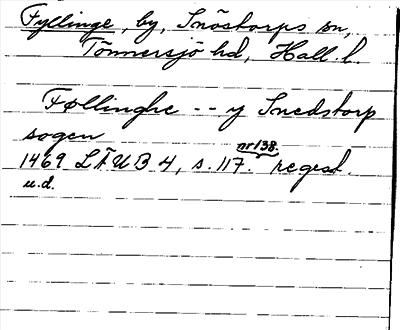 Fyllinge, by, Snöstorps sn,
Tönnersjö hd, Hall. l.
Føllinghe -- y Snedstorp
sogen
nr 138.
1469 LÄUB 4, s. 117. regest.
u.d.